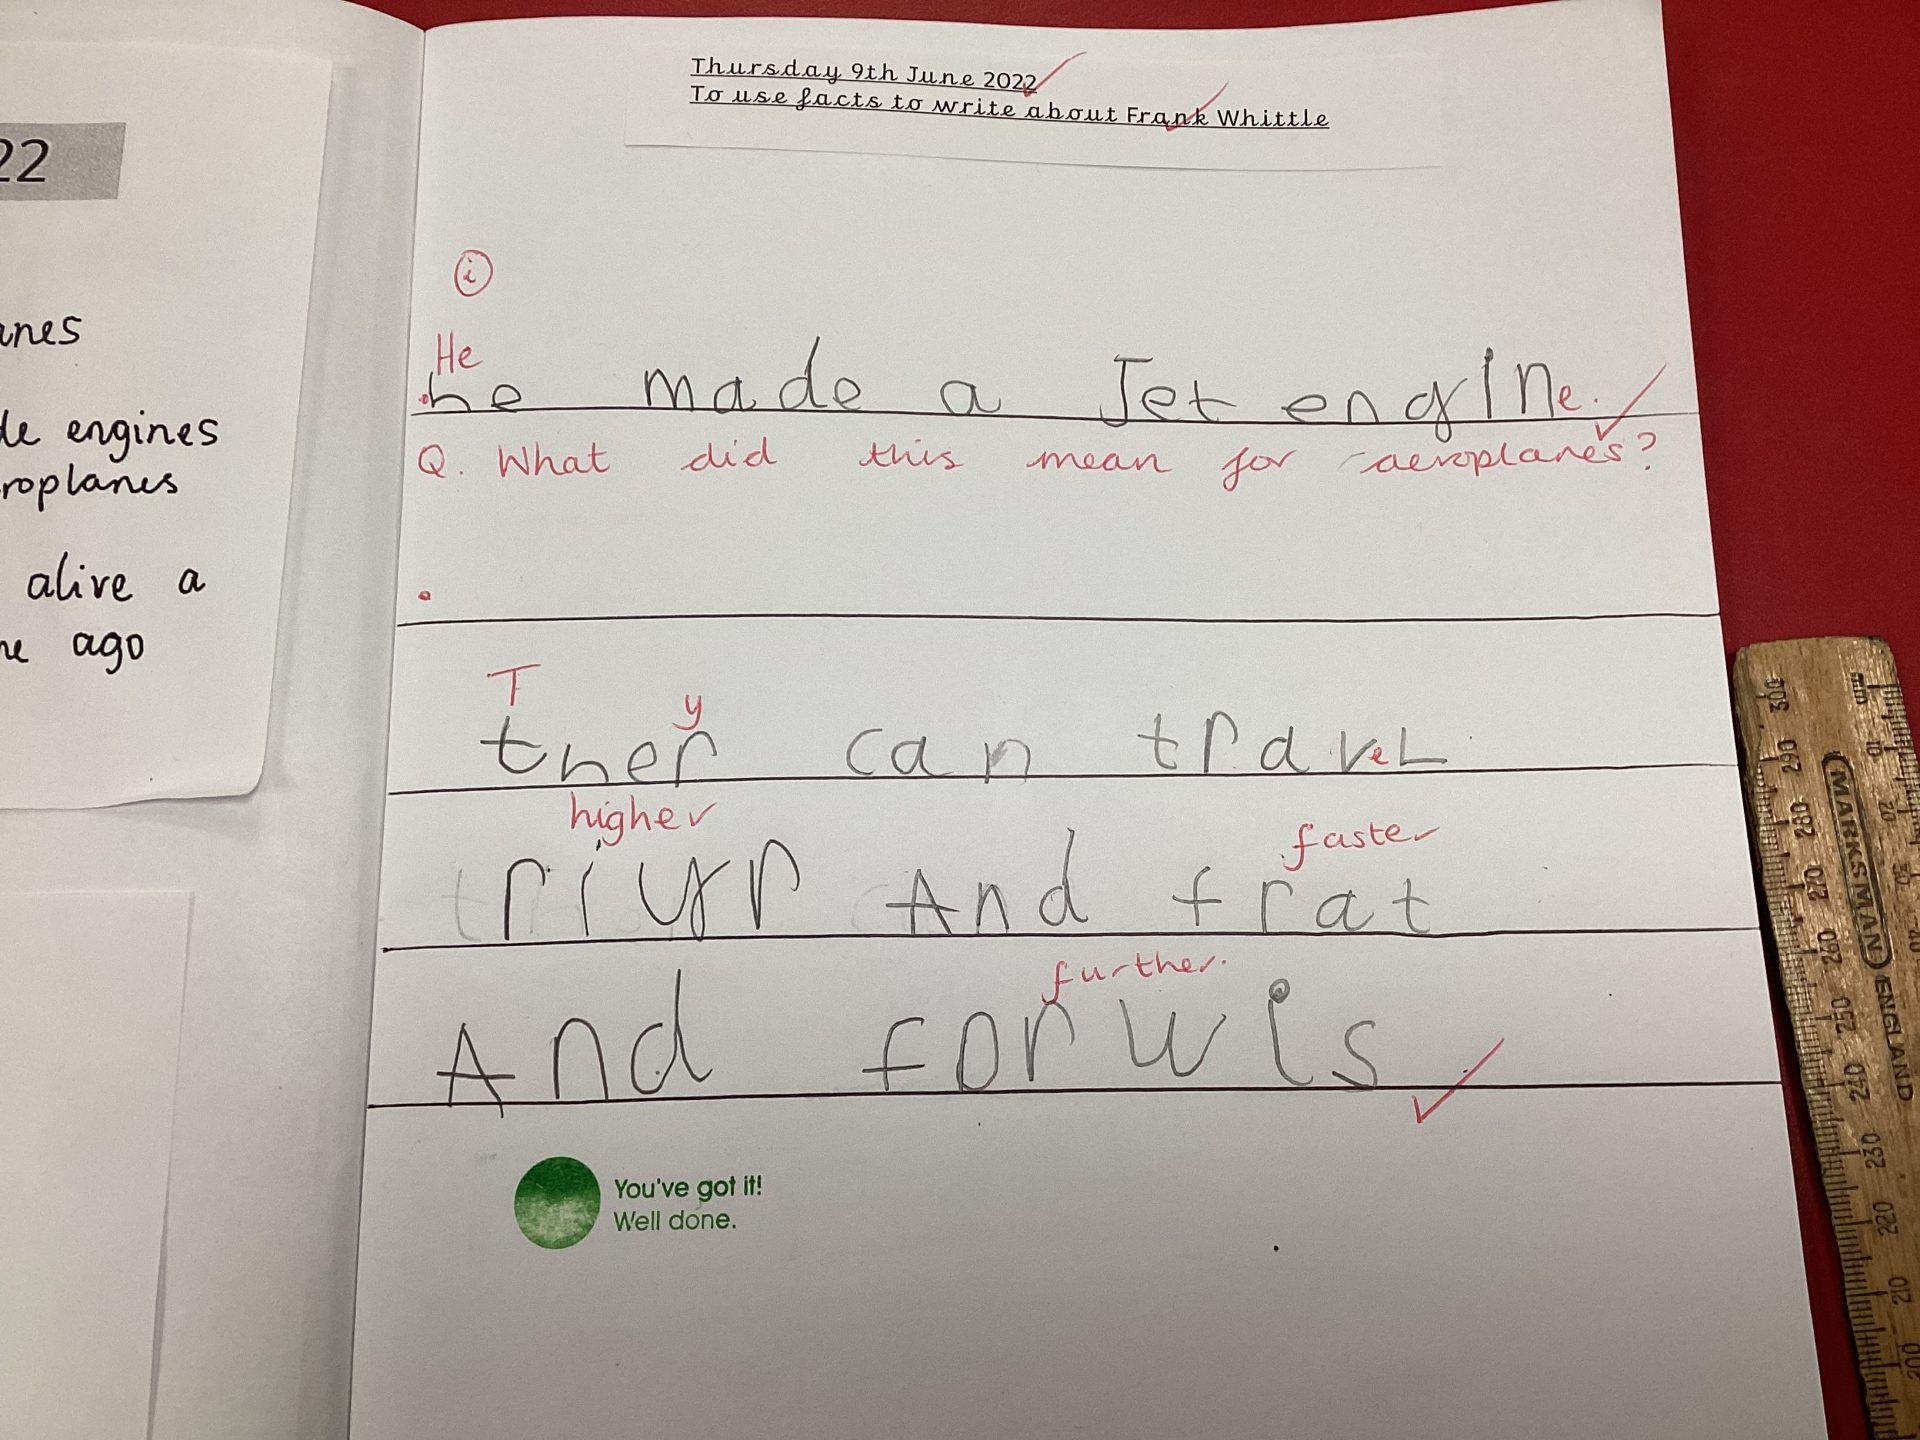 22
anes
de engines
roplanes
alive a
ne ago
Thursday 9th June 2022
To use facts to write about Frank Whittle
i
He
he made a Jet engIne.
Q. What did this mean for aeroplanes?
T y
ther can traveL
higher faster
riyr And frat
further.
And forwis
You've got it!
Well done.
MARKSMAN ENGLAND
mm 10 20 30 40
300 290 280 270 260 250 240 230 220 210 200